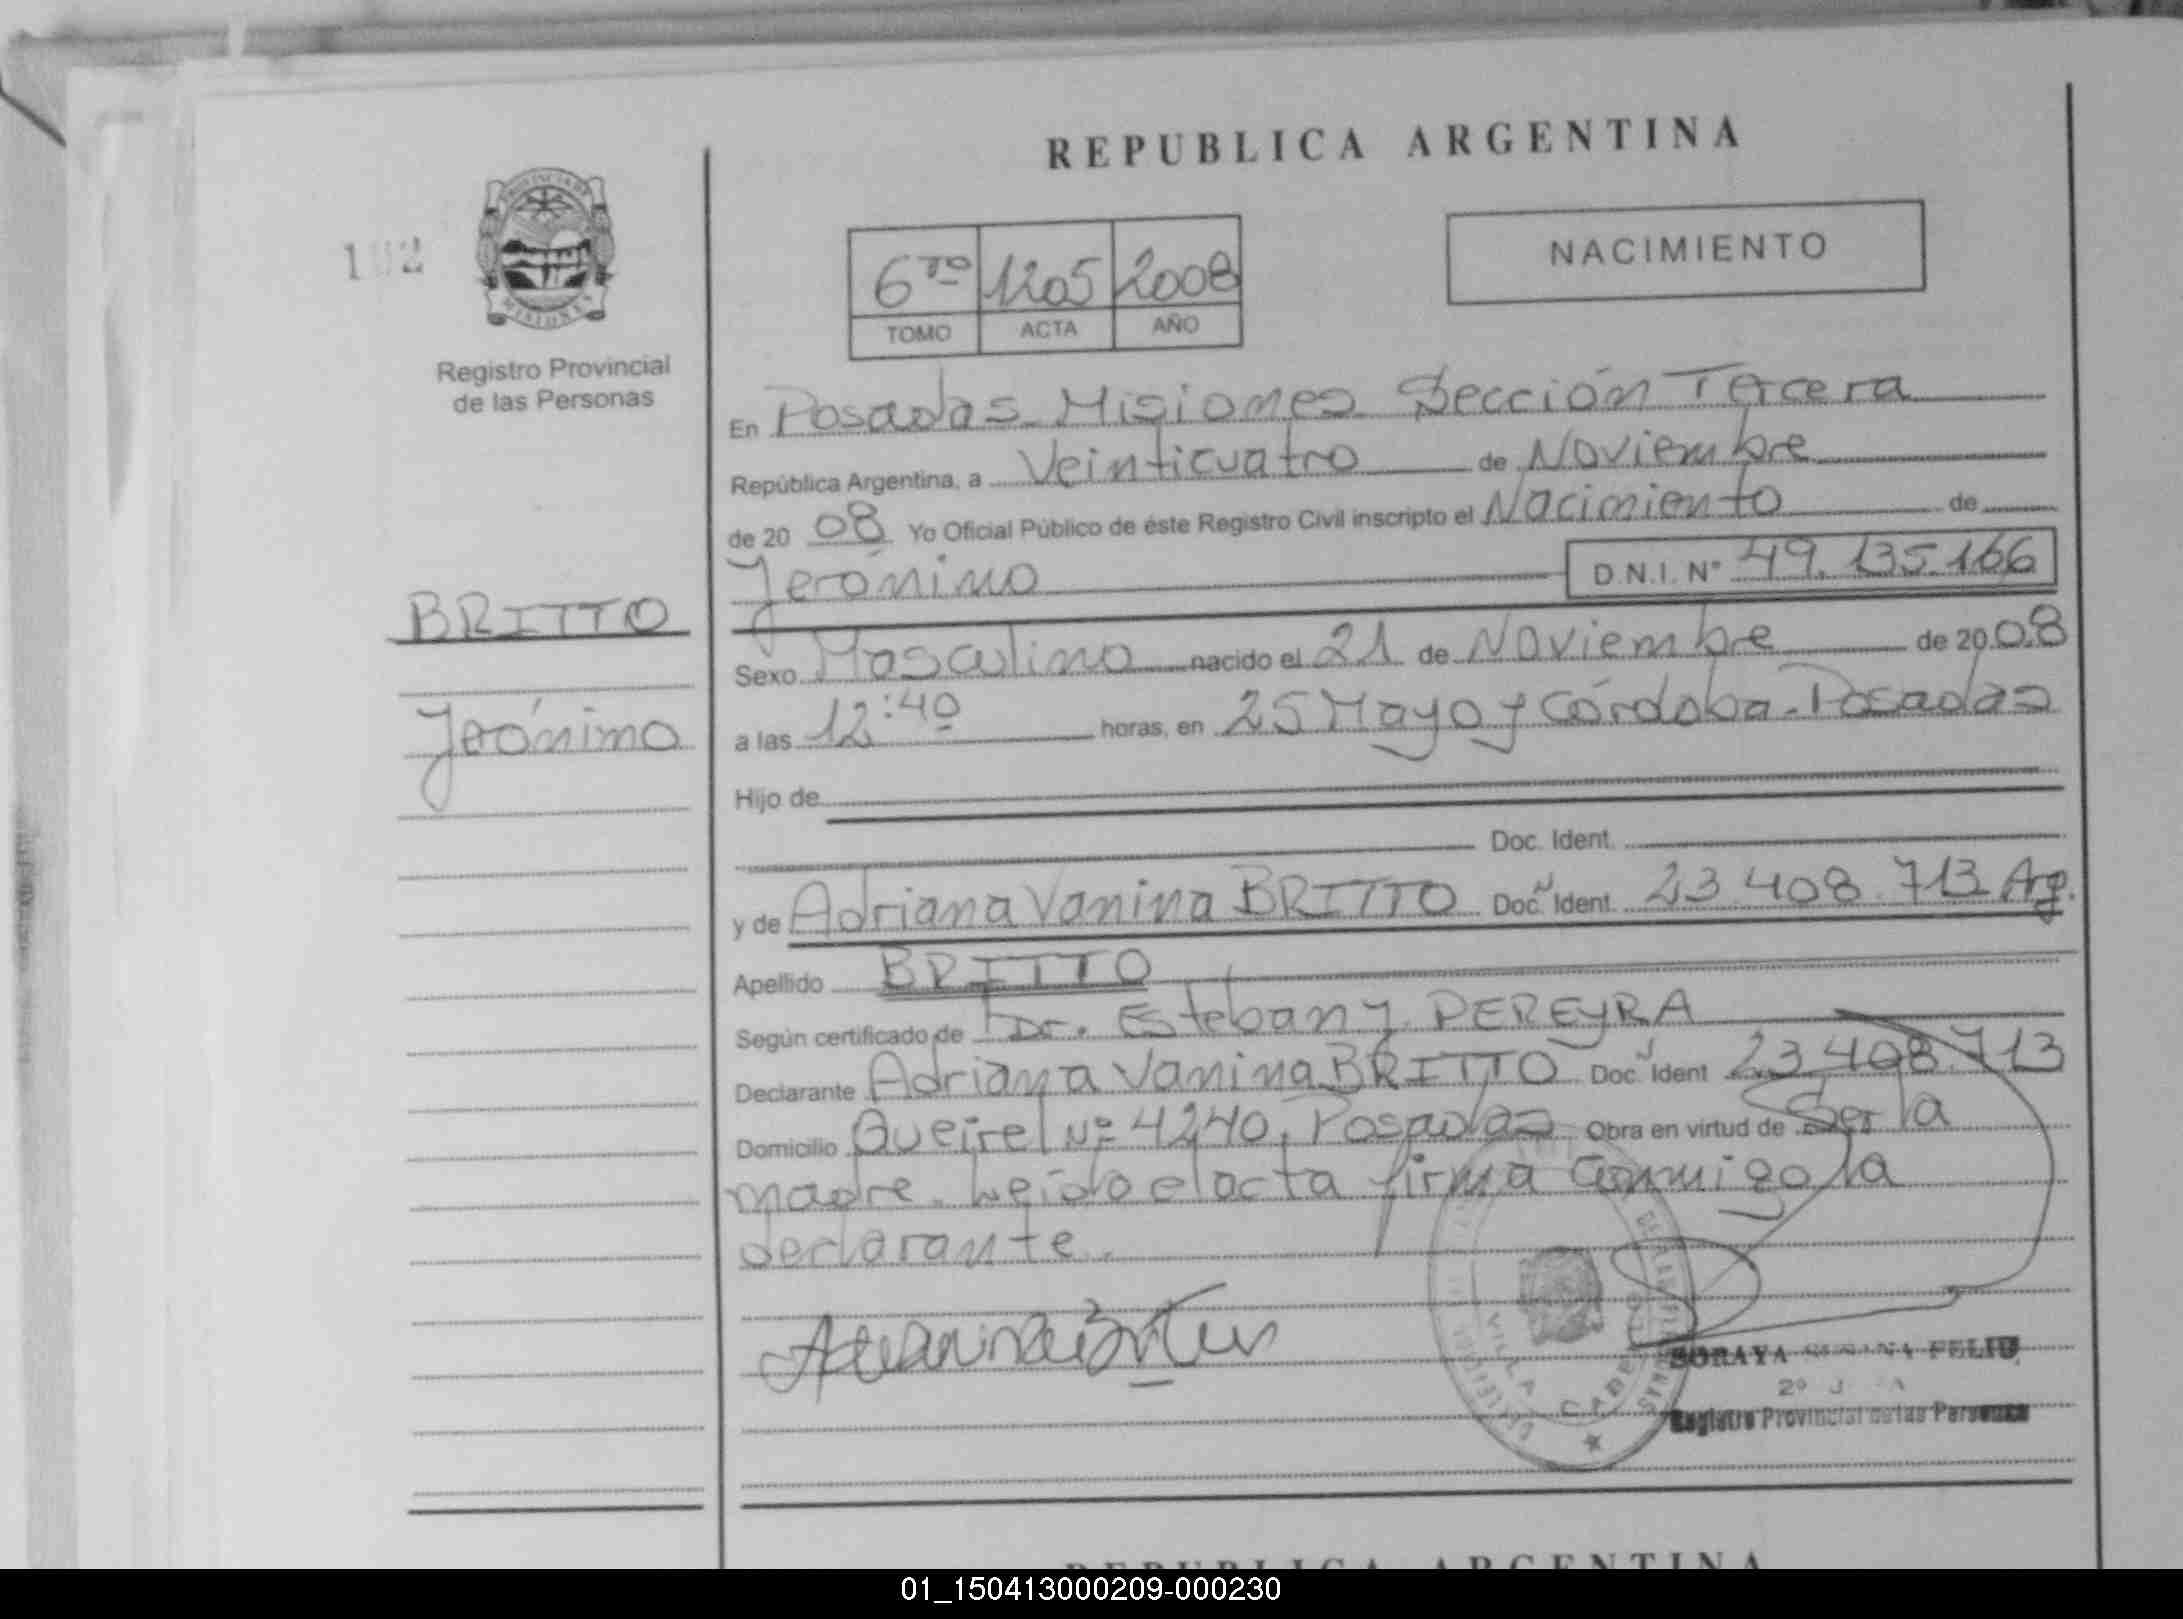 REPUBLICA ARGENTINA
NACIMIENTO
6to 1205 2008
TOMO ACTA AÑO
PROVINCIA DE
MISIONES
Registro Provincial
de las Personas
BRITTO
Jerónimo
En Posadas Misiones Sección Tercera
República Argentina, a Veinticuatro de Noviembre
de 20 08 Yo Oficial Público de éste Registro Civil inscripto el Nacimiento de
Jerónimo D.N.I. N° 49.135.166
Sexo Masculino nacido el 21 de Noviembre de 20 08
a las 12:40 horas, en 25 Mayo y Córdoba - Posadas
Hijo de
Doc. Ident.
y de Adriana Vanina BRITTO Doc. Ident. 23.408.713 Arg.
Apellido BRITTO
Según certificado de Dr. Esteban J. PEREYRA
Declarante Adriana Vanina BRITTO Doc. Ident 23.408.713
Domicilio Queirel Nº 4240, Posadas Obra en virtud de Ser la
madre. Leída el acta firma conmigo la
declarante.
SORAYA FELIU
Registro Provincial de las Personas
REPUBLICA ARGENTINA
01_150413000209-000230